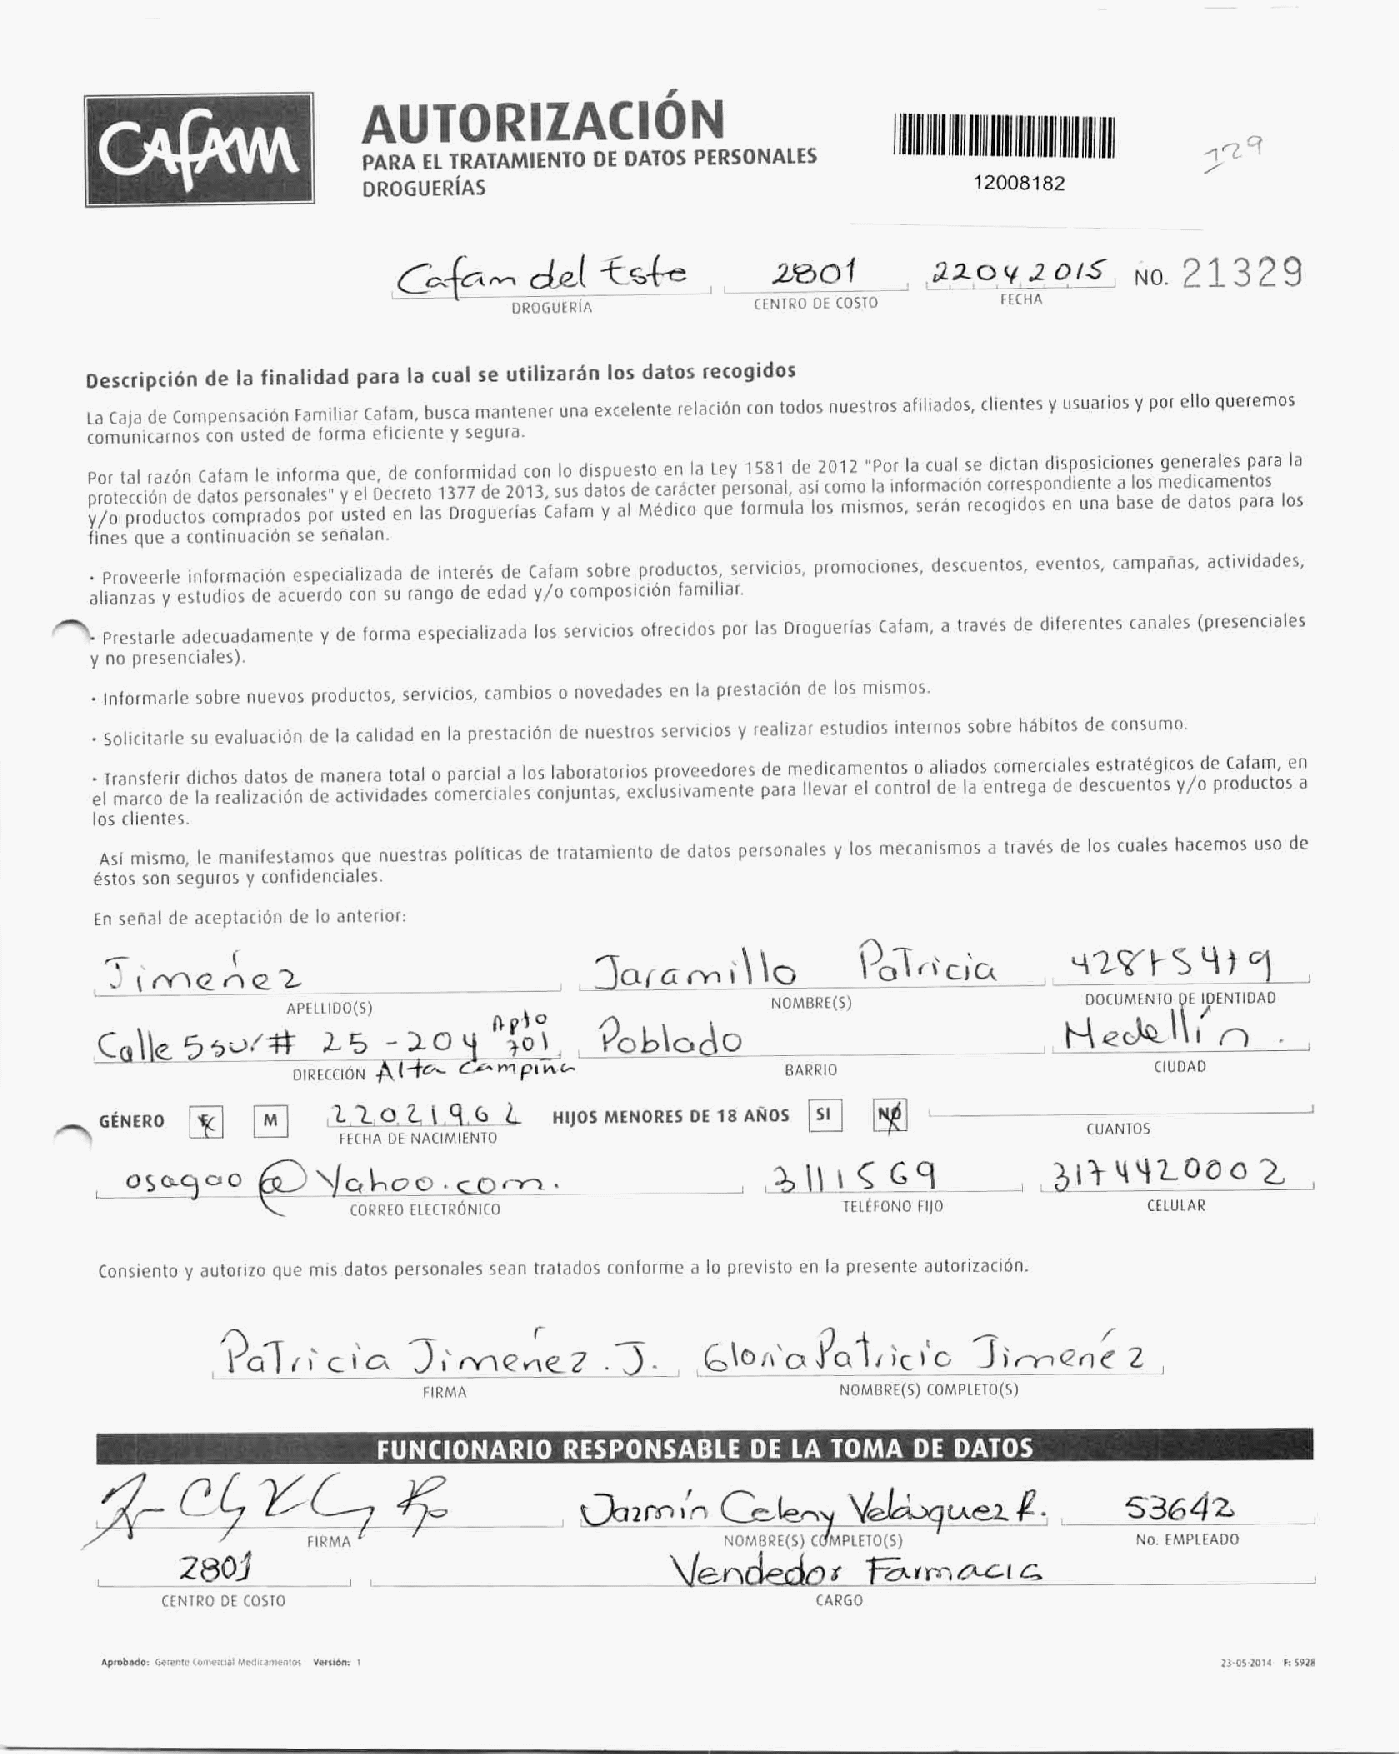 Cafam
AUTORIZACIÓN
PARA EL TRATAMIENTO DE DATOS PERSONALES
DROGUERÍAS
12008182
129
Cafam del Este 2801 22042015 NO. 21329
DROGUERÍA CENTRO DE COSTO FECHA
Descripción de la finalidad para la cual se utilizarán los datos recogidos
La Caja de Compensación Familiar Cafam, busca mantener una excelente relación con todos nuestros afiliados, clientes y usuarios y por ello queremos
comunicarnos con usted de forma eficiente y segura.
Por tal razón Cafam le informa que, de conformidad con lo dispuesto en la Ley 1581 de 2012 "Por la cual se dictan disposiciones generales para la
protección de datos personales" y el Decreto 1377 de 2013, sus datos de carácter personal, así como la información correspondiente a los medicamentos
y/o productos comprados por usted en las Droguerías Cafam y al Médico que formula los mismos, serán recogidos en una base de datos para los
fines que a continuación se señalan.
· Proveerle información especializada de interés de Cafam sobre productos, servicios, promociones, descuentos, eventos, campañas, actividades,
alianzas y estudios de acuerdo con su rango de edad y/o composición familiar.
· Prestarle adecuadamente y de forma especializada los servicios ofrecidos por las Droguerías Cafam, a través de diferentes canales (presenciales
y no presenciales).
· Informarle sobre nuevos productos, servicios, cambios o novedades en la prestación de los mismos.
· Solicitarle su evaluación de la calidad en la prestación de nuestros servicios y realizar estudios internos sobre hábitos de consumo.
· Transferir dichos datos de manera total o parcial a los laboratorios proveedores de medicamentos o aliados comerciales estratégicos de Cafam, en
el marco de la realización de actividades comerciales conjuntas, exclusivamente para llevar el control de la entrega de descuentos y/o productos a
los clientes.
Así mismo, le manifestamos que nuestras políticas de tratamiento de datos personales y los mecanismos a través de los cuales hacemos uso de
éstos son seguros y confidenciales.
En señal de aceptación de lo anterior:
Jimenez Jaramillo Patricia 42875419
APELLIDO(S) NOMBRE(S) DOCUMENTO DE IDENTIDAD
Calle 5 sur # 25 - 204 Apto 701 Poblado Medellín.
DIRECCIÓN Alta Campiña BARRIO CIUDAD
GÉNERO F M 22021962 HIJOS MENORES DE 18 AÑOS SI NO
FECHA DE NACIMIENTO CUANTOS
osagao@Yahoo.com. 3111569 3174420002
CORREO ELECTRÓNICO TELÉFONO FIJO CELULAR
Consiento y autorizo que mis datos personales sean tratados conforme a lo previsto en la presente autorización.
Patricia Jimenez. J. Gloria Patricia Jimenéz
FIRMA NOMBRE(S) COMPLETO(S)
FUNCIONARIO RESPONSABLE DE LA TOMA DE DATOS
Jazmín Celeny Velásquez R. 53642
FIRMA NOMBRE(S) COMPLETO(S) No. EMPLEADO
2801 Vendedor Farmacia
CENTRO DE COSTO CARGO
Aprobado: Gerente Comercial Medicamentos Versión: 1 23-05-2014 F: 5928